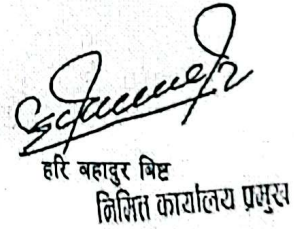 हरि बहादुर बिष्ट
निमित्त कार्यालय प्रमुख